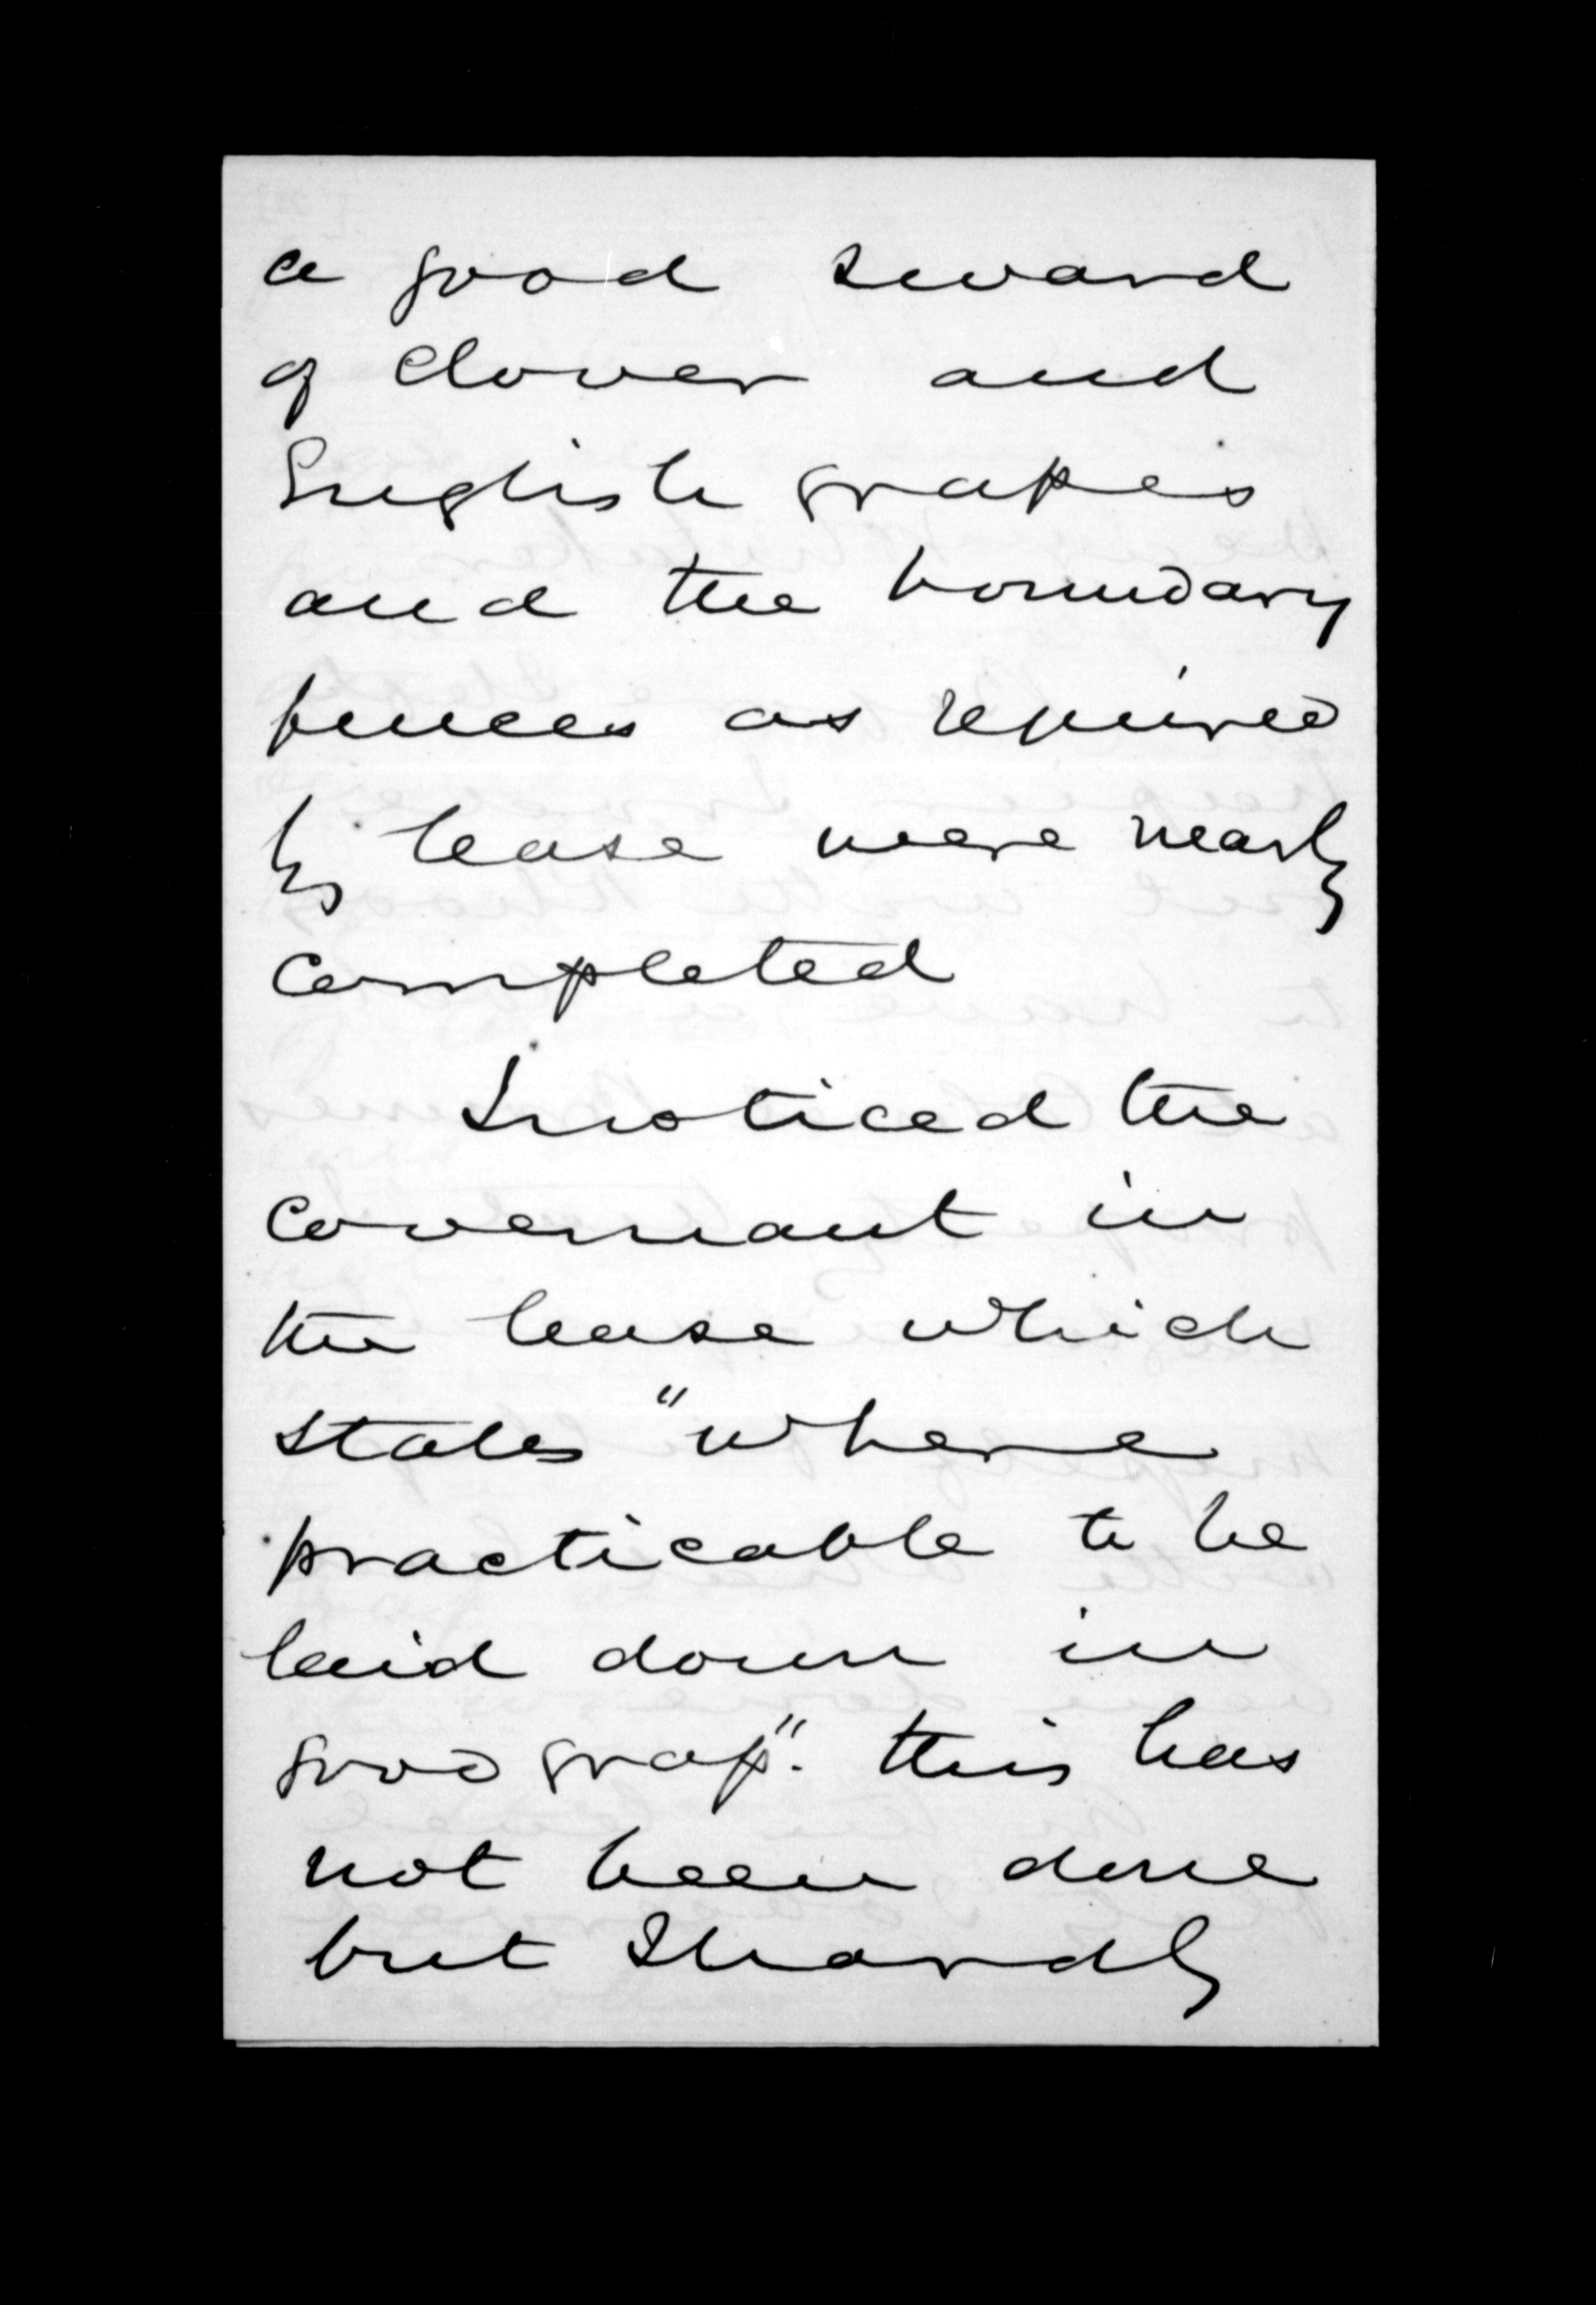 a good sward
of Clover and
English grasses
and the boundary
fences as required
by lease were nearly
completed
I noticed the
covenant in
the lease which
states "where
practicable to be
laid down in
good grass". this has
not been done
but I hardly